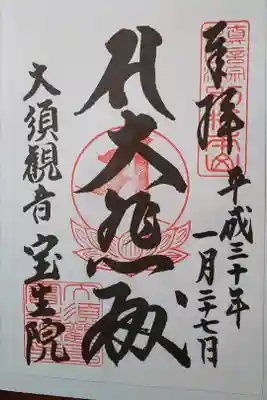 奉拝
平成三十年
一月二十七日
大悲殿
大須観音
宝生院